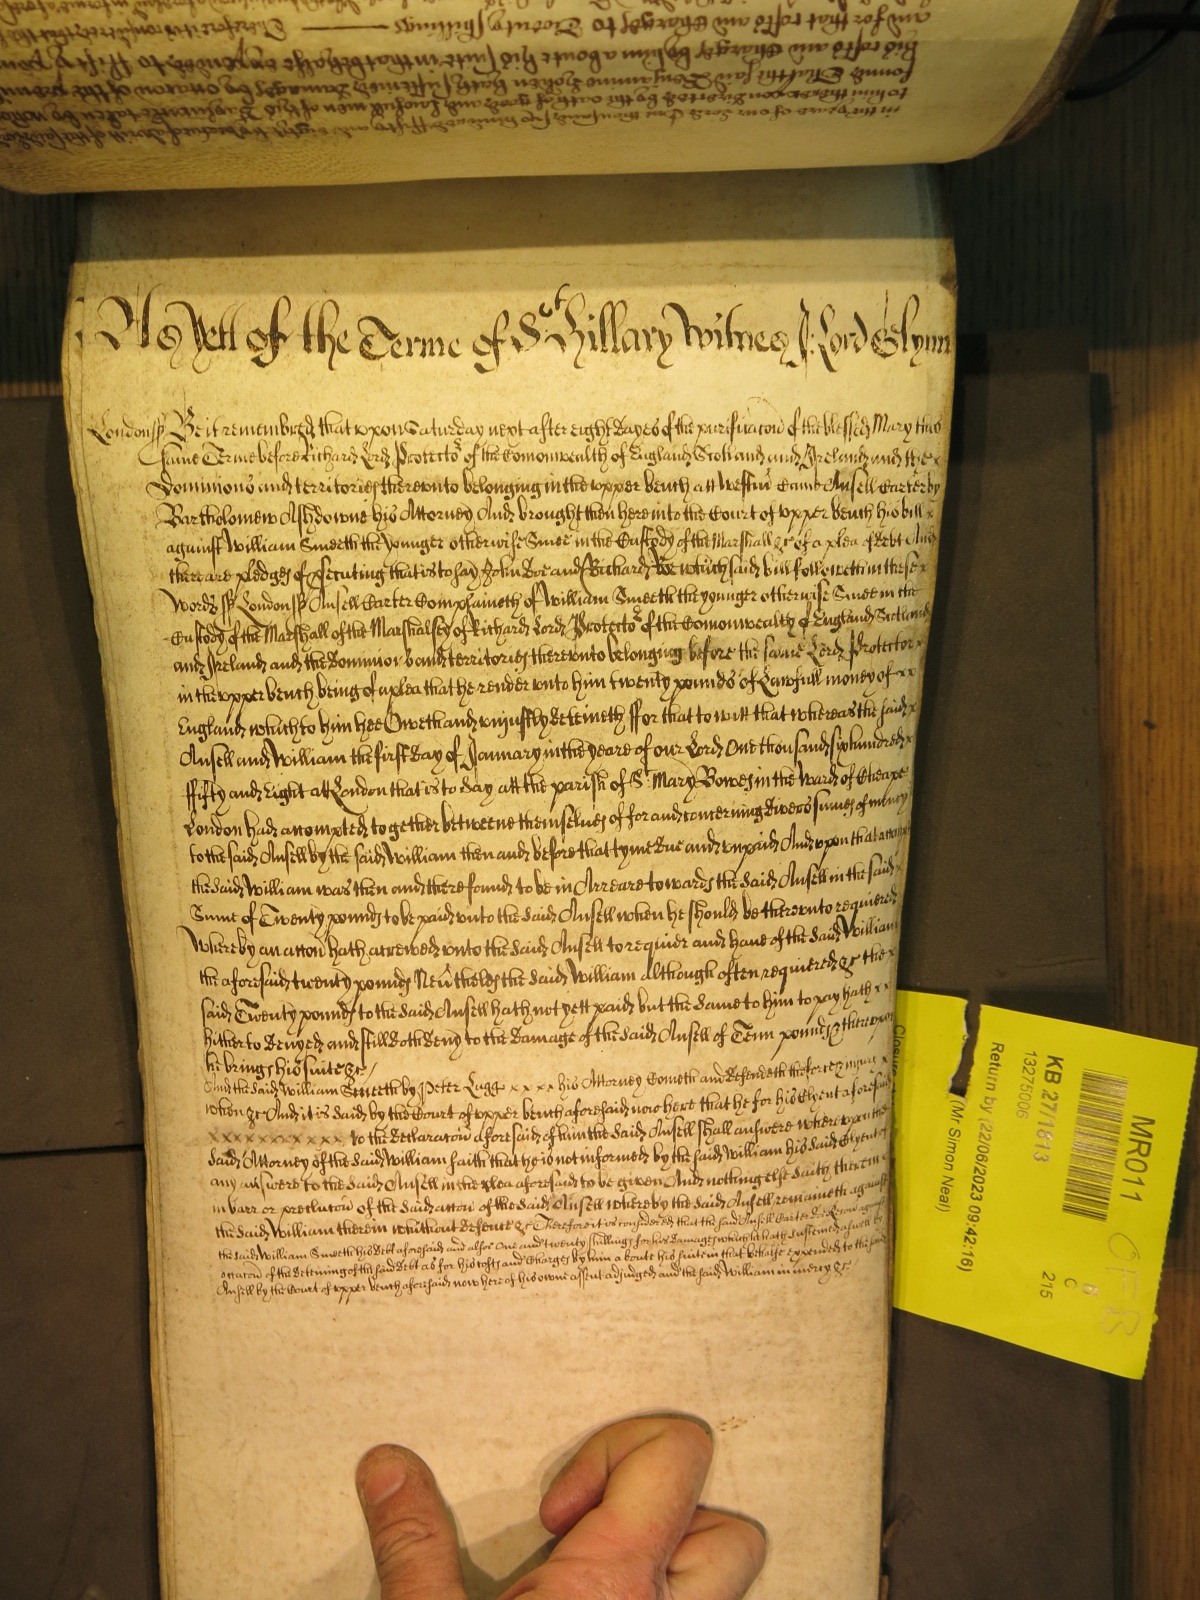 and for that costs and Charges to Twenty shillings
his costs and Charges by him aboute his suite in that behalfe expended to fifty
As yett of the Terme of St Hillary Witnes J: Lord Glynn
London ss Be it remembred that uppon Saturday next after eight dayes of the purificacon of the blessed Mary this
same Terme before Richard Lord Protector of the Comonwealth of England Scotland and Ireland and the x
Dominions and territories thereunto belonging in the upper bench att Westmr Came Ansell Carter by
Bartholomew Ashdowne his Attorney And brought then here into the Court of upper bench his bill x
against William Smeeth the younger otherwise Smee in the Custody of the Marshall &c of a plea of debt And
there are pledges of prosecuting that is to say John Doe and Richard Roe which said bill followeth in these x
Words ss London ss Ansell Carter Complaineth of William Smeeth the younger otherwise Smee in the
Custody of the Marshall of the Marshalsey of Richard Lord Protector of the Comonwealth of England Scotland
and Ireland and the Dominions and territories thereunto belonging before the same Lord Protector x
in the upper bench being of a plea that he render unto him twenty pounds of Lawfull money of xx
England which to him hee Oweth and unjustly deteineth ffor that to witt that whereas the said x
Ansell and William the first day of January in the yeare of our Lord One thousand six hundred x
ffifty and Eight at London that is to say att the parish of St Mary Bowes in the Ward of Cheape
London had accompted together betweene themselves of for and concerning divers sumes of money
to the said Ansell by the said William then and before that tyme due and unpaid And upon that accompt
the said William was then and there found to be in Arreare towards the said Ansell in the said x
Sume of Twenty pounds to be paid unto the said Ansell when he should be thereunto required
Whereby an accon hath accrewed unto the said Ansell to require and have of the said William
the aforesaid twenty pounds Nevertheles the said William although often requiered &c the x
said Twenty pounds to the said Ansell hath not yett paid but the same to him to pay hath xx
hitherto denyed and still doth deny to the damage of the said Ansell of Tenn pounds &c thereupon
he brings his suite &c
And the said William Smeeth by Peter Lugg x x x x his Attorney Cometh and defendeth the force & injury x
when &c And it is said by the Court of upper bench aforesaid now here that he for his Clyent aforesaid
x x x x x x x x x x to the declaracon aforesaid of him the said Ansell shall answere whereupon the
said Attorney of the said William saith that he is not informed by the said William his said Clyent of
any answere to the said Ansell in the plea aforesaid to be given And nothing else saith therein
in barr or preclucon of the said accon of the said Ansell whereby the said Ansell remaineth against
the said William therein without defence &c Therefore it is considered that the said Ansell Carter do recover against
the said William Smeeth his debt aforesaid and alsoe One and twenty shillings for his damages which he hath susteined aswell by
occacon of the deteining of the said debt as for his costs and Charges by him aboute his suite in that behalfe expended to the said
Ansell by the Court of upper bench aforesaid now here of his owne assent adjudged and the said William in mercy &c
MR011
KB 27/1813
13275006
Return by (22/06/2023 09:42:16)
(Mr Simon Neal)
C
215